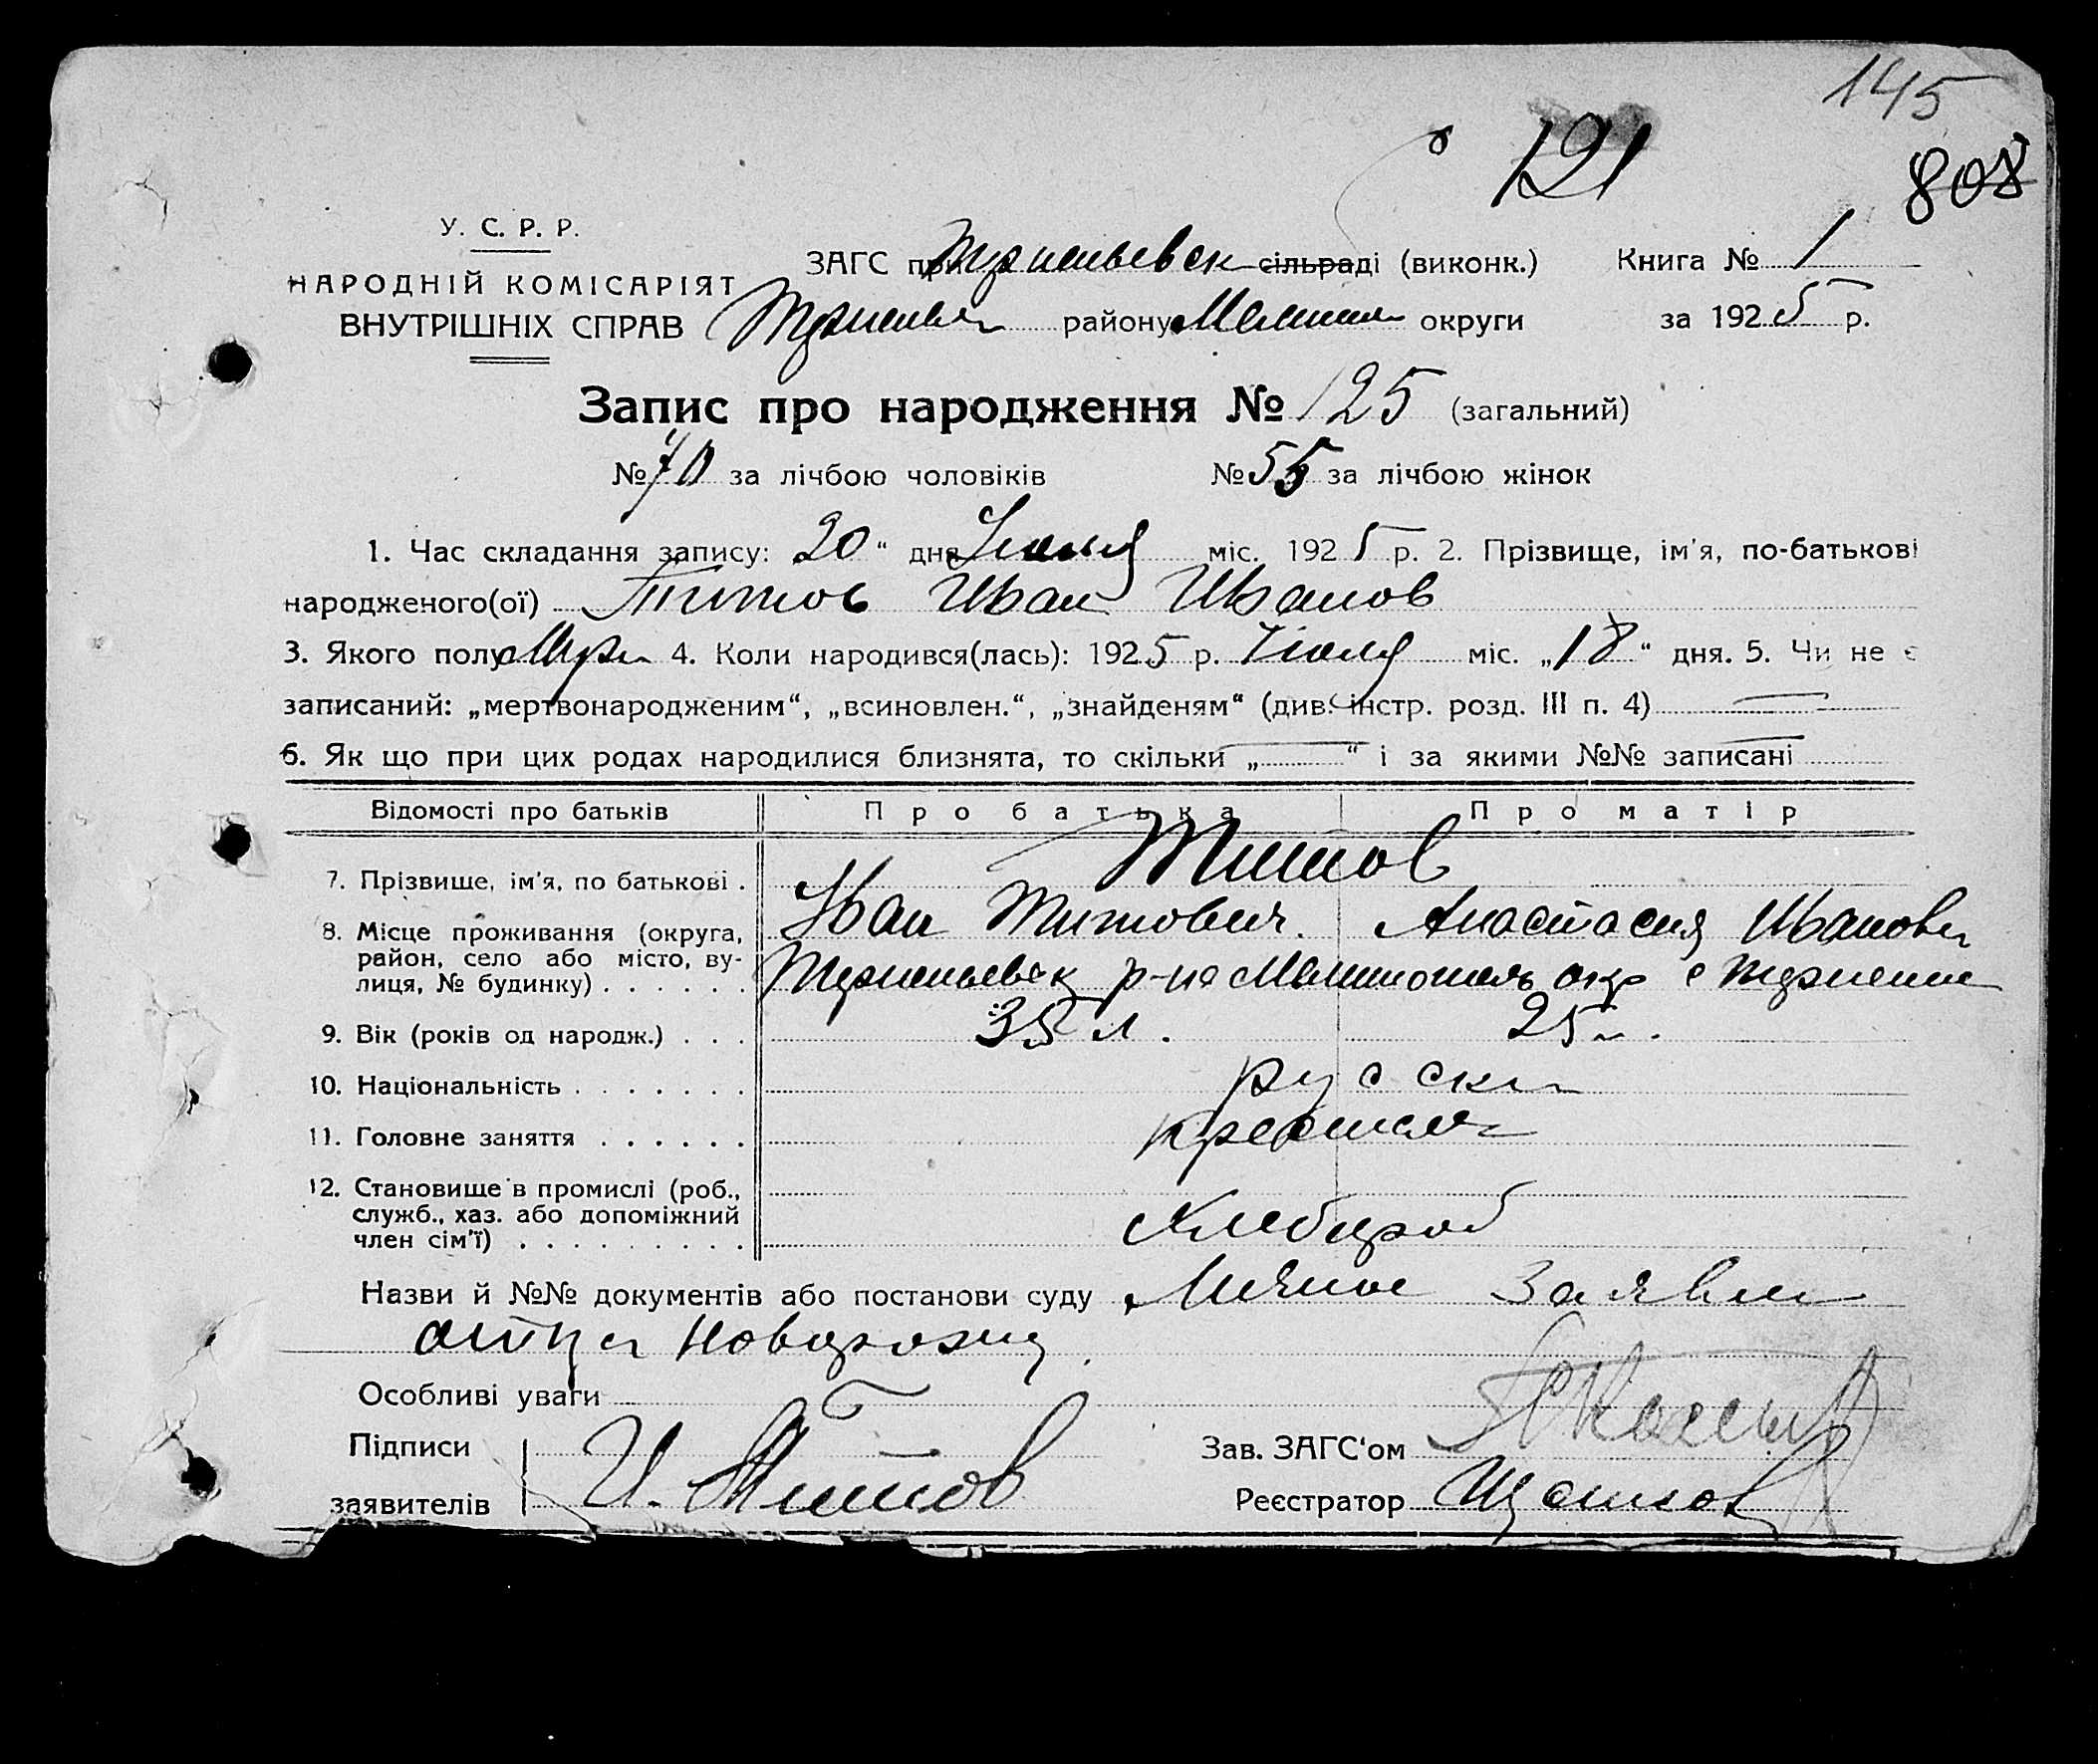 145
121
808
У. С. Р. Р.
НАРОДНІЙ КОМІСАРІЯТ
ВНУТРІШНІХ СПРАВ
ЗАГС при сільраді (виконк.) Книга № 1
району округи за 1925 р.
Запис про народження № 125 (загальний)
№ 70 за лічбою чоловіків № 55 за лічбою жінок
1. Час складання запису: 20 " дня Июля міс. 1925 р. 2. Прізвище, ім'я, по-батькові
народженого(ої) Титов Иван Иванов
3. Якого полу Муж 4. Коли народився(лась): 1925 р. Июля міс. „18“ дня. 5. Чи не є
записаний: „мертвонародженим“, „всиновлен.“, „знайденям“ (див. інстр. розд. III п. 4)
6. Як що при цих родах народилися близнята, то скільки „ “ і за якими №№ записані
Відомості про батьків Про батька Про матір
7. Прізвище, ім'я, по батькові . Титов
Иван Титович. Анастасия Ивановн
8. Місце проживання (округа,
район, село або місто, ву-
лиця, № будинку) . . . . . . р-на окр с
9. Вік (років од народж.) . . . 35 л. 25
10. Національність . . . . . . . русски
11. Головне заняття . . . . . .
12. Становище в промислі (роб.,
служб., хаз. або допоміжний
член сім'ї) . . . . . . . . . Хлебороб
Назви й №№ документів або постанови суду Личное Заявлен
отца Новорожд
Особливі уваги
Підписи
заявителів И. Титов
Зав. ЗАГС'ом
Реєстратор